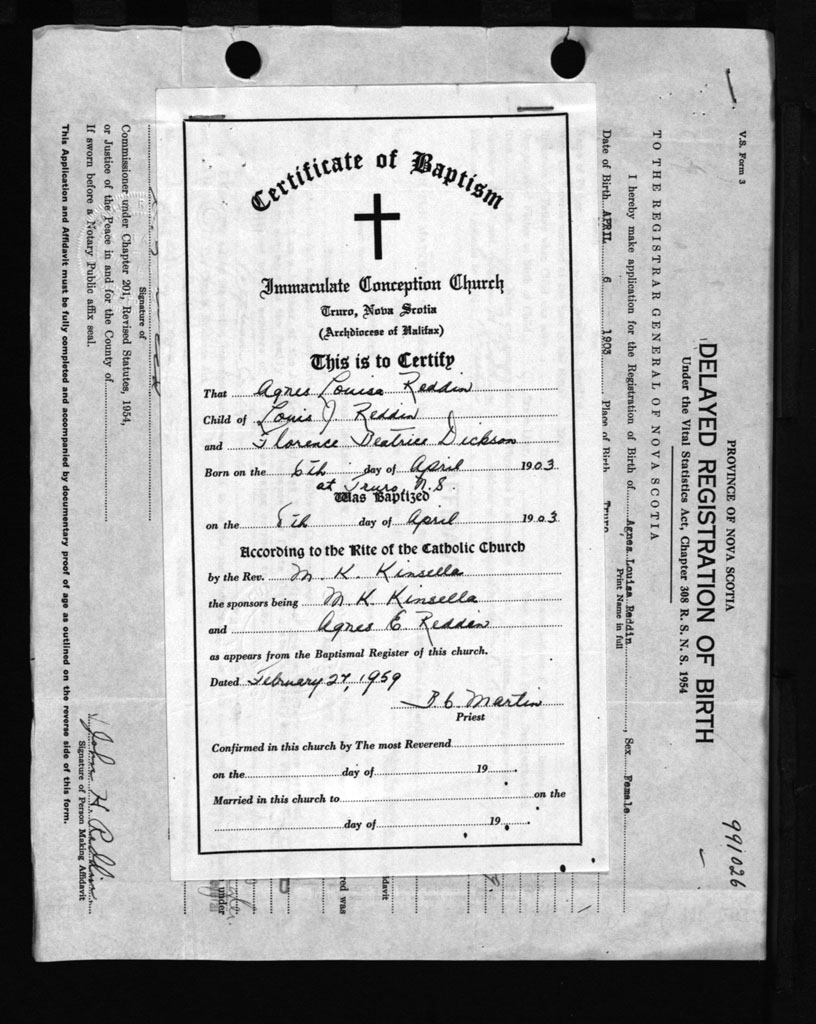 Certificate of Baptism
Immaculate Conception Church
Truro, Nova Scotia
(Archdiocese of Halifax)
This is to Certify
That Agnes Louisa Reddin
Child of Louis J Reddin
and Florence Beatrice Dickson
Born on the 6th day of April 1903
at Truro, N.S.
Was Baptized
on the 8th day of April 1903
According to the Rite of the Catholic Church
by the Rev. M. K. Kinsella
the sponsors being M. K. Kinsella
and Agnes E Reddin
as appears from the Baptismal Register of this church.
Dated February 27, 1959
B. C. Martin
Priest
Confirmed in this church by The most Reverend
on the day of 19
Married in this church to on the
day of 19
V.S. Form 3
991026
PROVINCE OF NOVA SCOTIA
DELAYED REGISTRATION OF BIRTH
Under the Vital Statistics Act, Chapter 308 R. S. N. S. 1954
TO THE REGISTRAR GENERAL OF NOVA SCOTIA
I hereby make application for the Registration of Birth of Agnes Louisa Reddin, Sex Female
Print Name in full
Date of Birth APRIL 6 1903 Place of Birth Truro
davit
rod was
under
Signature of
Commissioner under Chapter 201, Revised Statutes, 1954,
or Justice of the Peace in and for the County of
If sworn before a Notary Public affix seal.
John H Reddin
Signature of Person Making Affidavit
This Application and Affidavit must be fully completed and accompanied by documentary proof of age as outlined on the reverse side of this form.